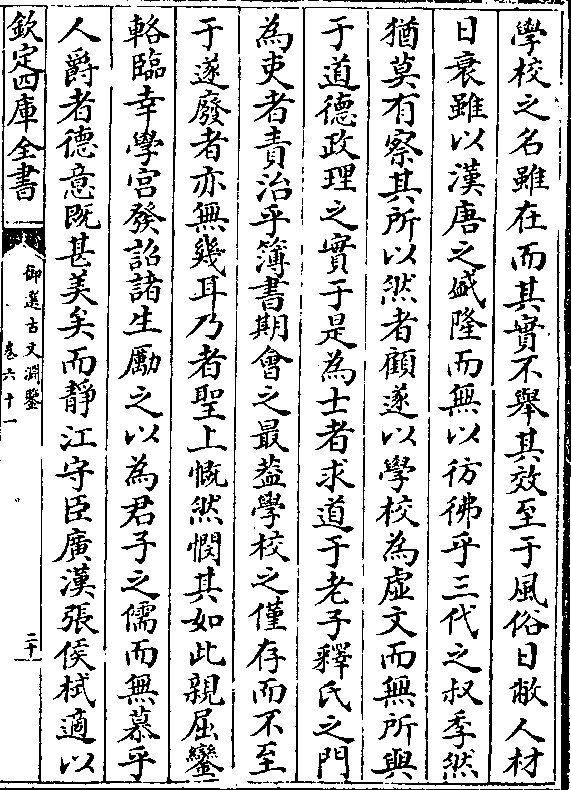 學校之名雖在而其實不舉其效至于風俗日敝人材
日衰雖以漢唐之盛隆而無以彷彿乎三代之叔季然
猶莫有察其所以然者顧遂以學校為虛文而無所與
于道德政理之實于是為士者求道于老子釋氏之門
為吏者責治乎簿書期會之最葢學校之僅存而不至
于遂廢者亦無幾耳乃者聖上慨然憫其如此親屈鑾
輅臨幸學宫發詔諸生勵之以為君子之儒而無慕乎
人爵者德意既甚美矣而靜江守臣廣漢張侯栻適以
欽定四庫全書
御選古文淵鑒
卷六十一
二十